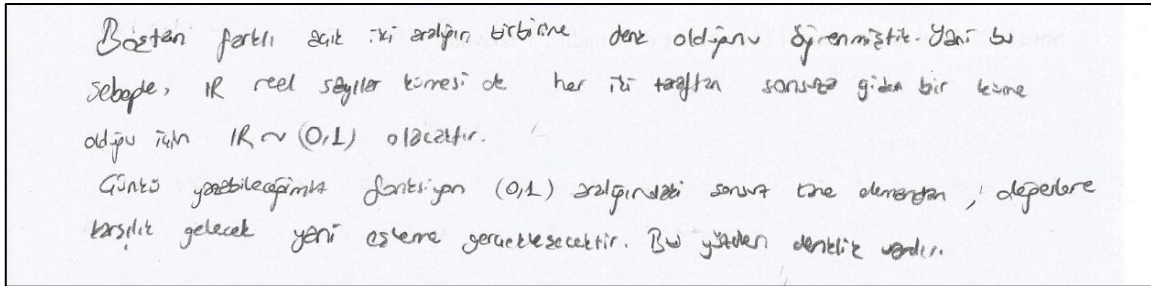 Boştan farklı açık iki aralığın birbirine denk olduğunu öğrenmiştik. Yani bu
sebeple, IR reel sayılar kümesi de her iki taraftan sonsuza giden bir küme
olduğu için IR ~ (0,1) olacaktır.
Çünkü yazabileceğimiz fonksiyon (0,1) aralığındaki sonsuz tane elemandan, değerlere
karşılık gelecek yani eşleme gerçekleşecektir. Bu yüzden denklik vardır.